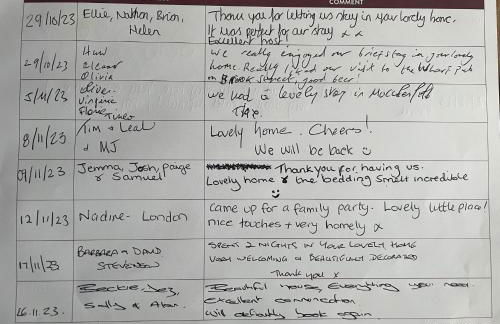 COMMENT
29/10/23 Ellie, Nathan, Brian, Helen
Thank you for letting us stay in your lovely home.
It was perfect for our stay x x
Excellent host
29/10/23 Huw Eleanor Olivia
We really enjoyed our brief stay in your lovely
home. Really liked our visit to the Wharf Pub
on Brook Street, good beer!
5/11/23 Oliver Virginie Flore
we had a lovely stay in Macclesfield
8/11/23 Tim & Leah & MJ
Lovely home. Cheers!
We will be back
09/11/23 Jemma, Josh, Paige & Samuel
Thank you for having us.
Lovely home & the bedding smelt incredible
12/11/23 Nadine - London
Came up for a family party. Lovely little place!
nice touches + very homely x
17/11/23 BARBARA & DAVID STEVENSON
SPENT 2 NIGHTS IN YOUR LOVELY HOME
VERY WELCOMING & BEAUTIFULLY DECORATED
Thank you x
26.11.23. Beckie, Jez, Sally & Alan.
Beautiful house, Everything you need.
Excellent communication.
Will definitely book again.